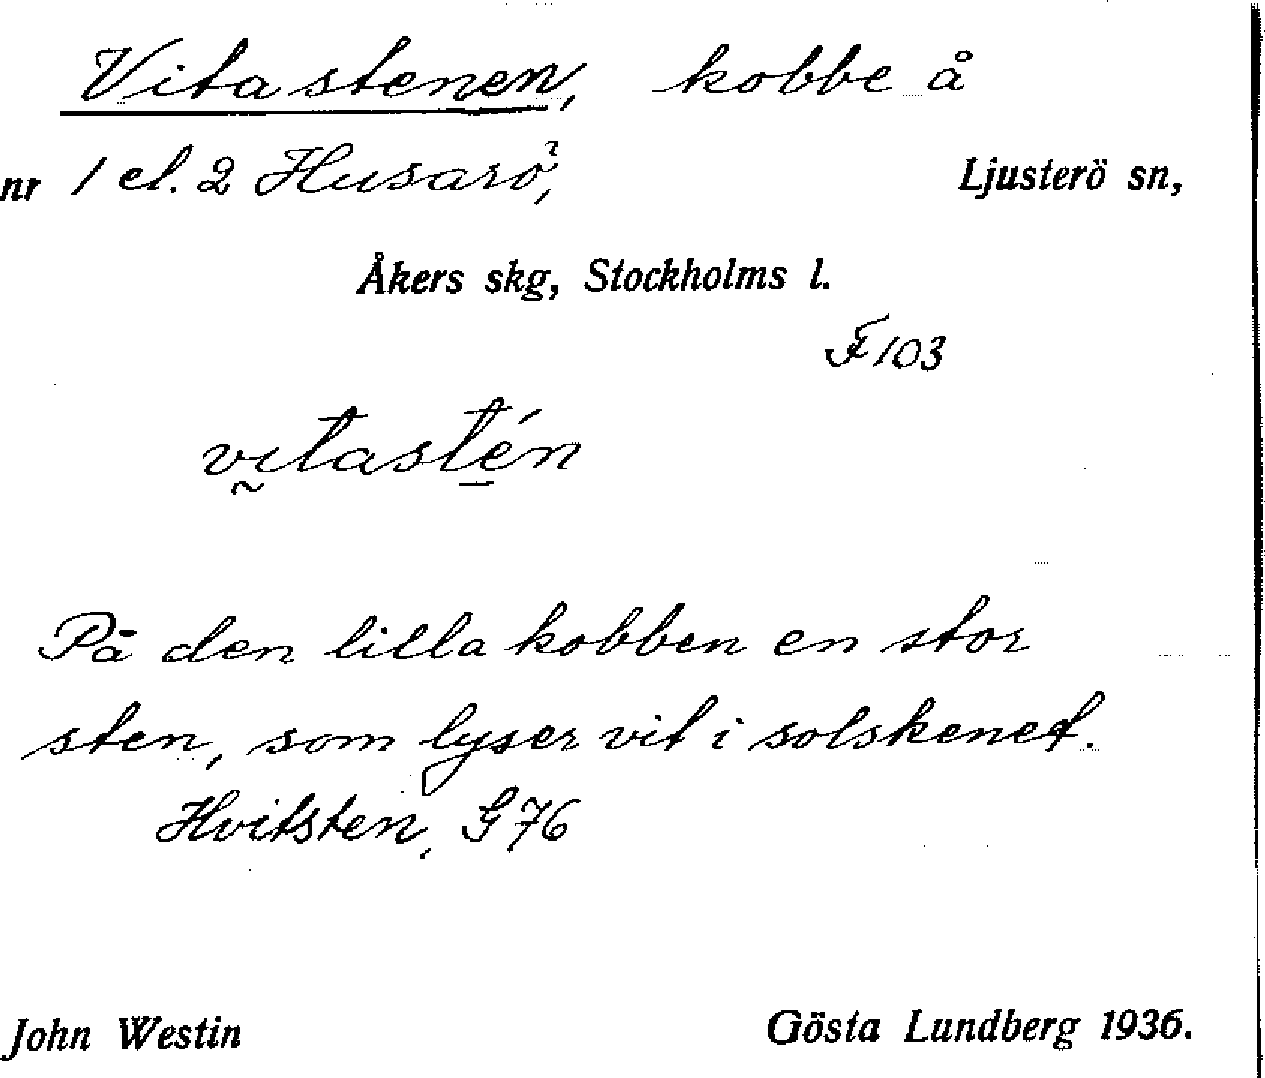 Vita stenen, kobbe å
nr 1 el. 2 Husarö, Ljusterö sn,
Åkers skg, Stockholms l.
F 103
vı̰tasté̱n
På den lilla kobben en stor
sten, som lyser vit i solskenet.
Hvitsten, G 76
John Westin Gösta Lundberg 1936.